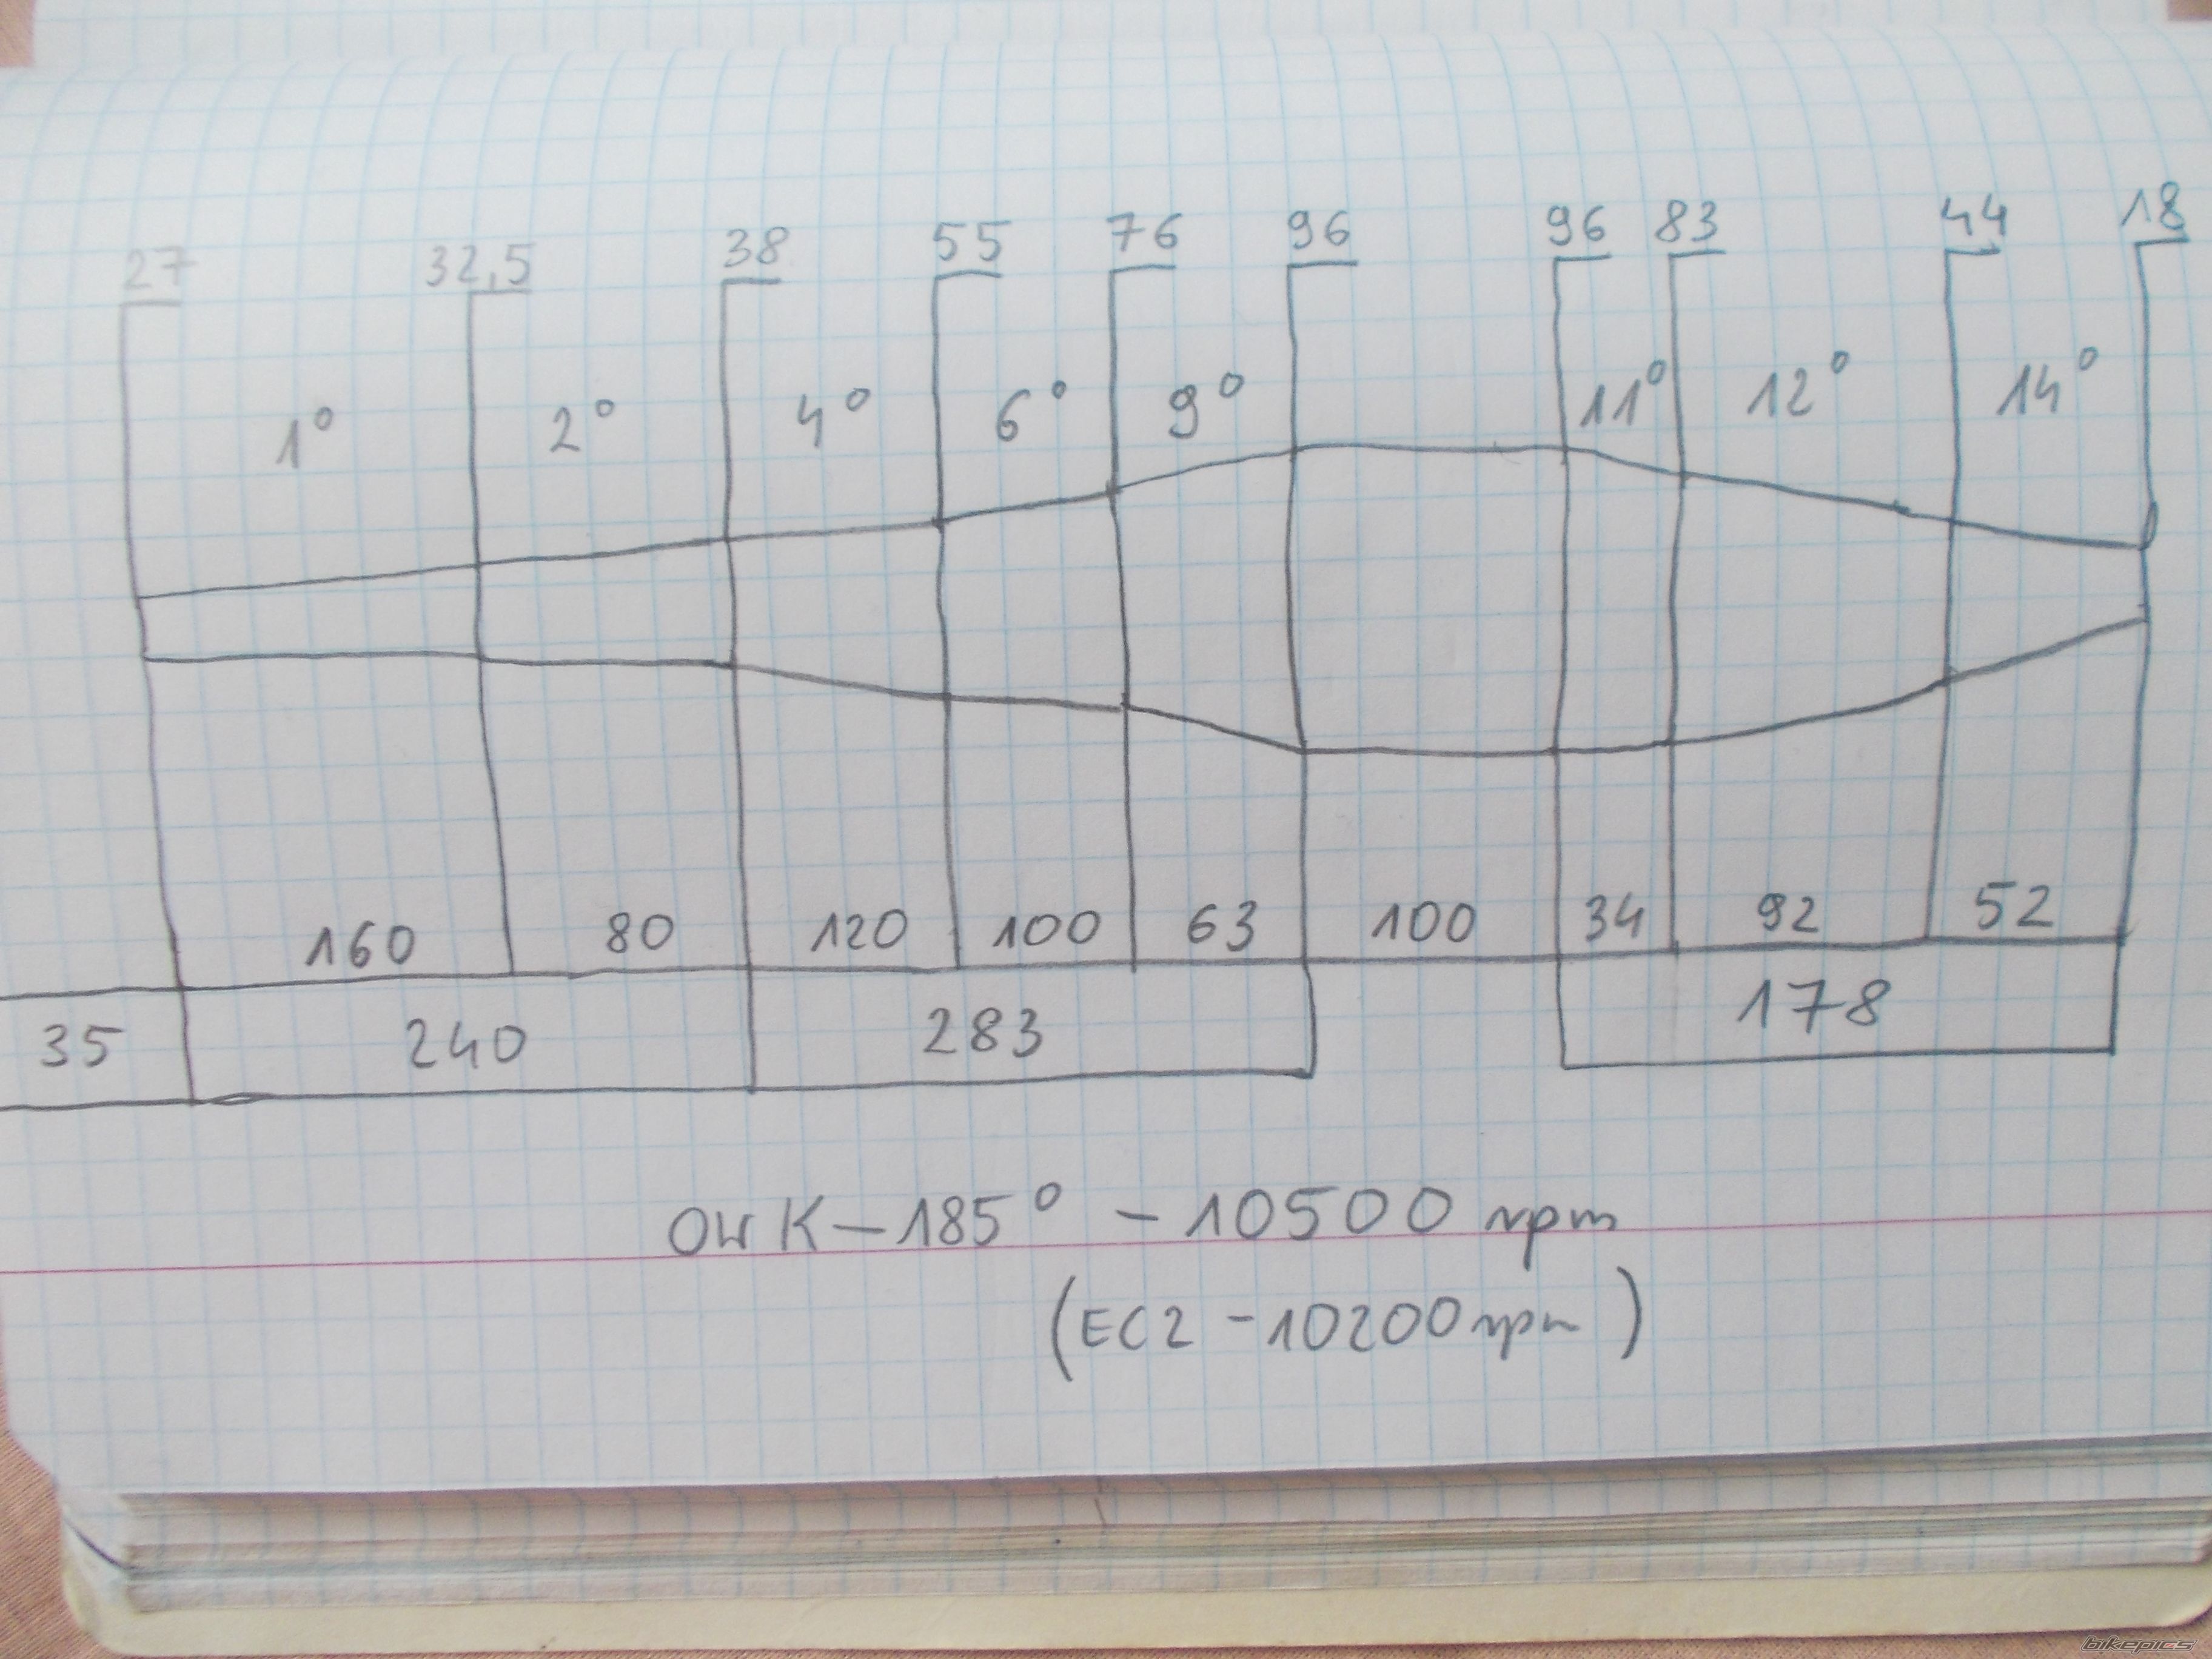 27 32,5 38 55 76 96 96 83 44 18
1° 2° 4° 6° 9° 11° 12° 14°
160 80 120 100 63 100 34 92 52
35 240 283 178
OWK-185° - 10500 rpm
(EC2 - 10200 rpm)
bikepics